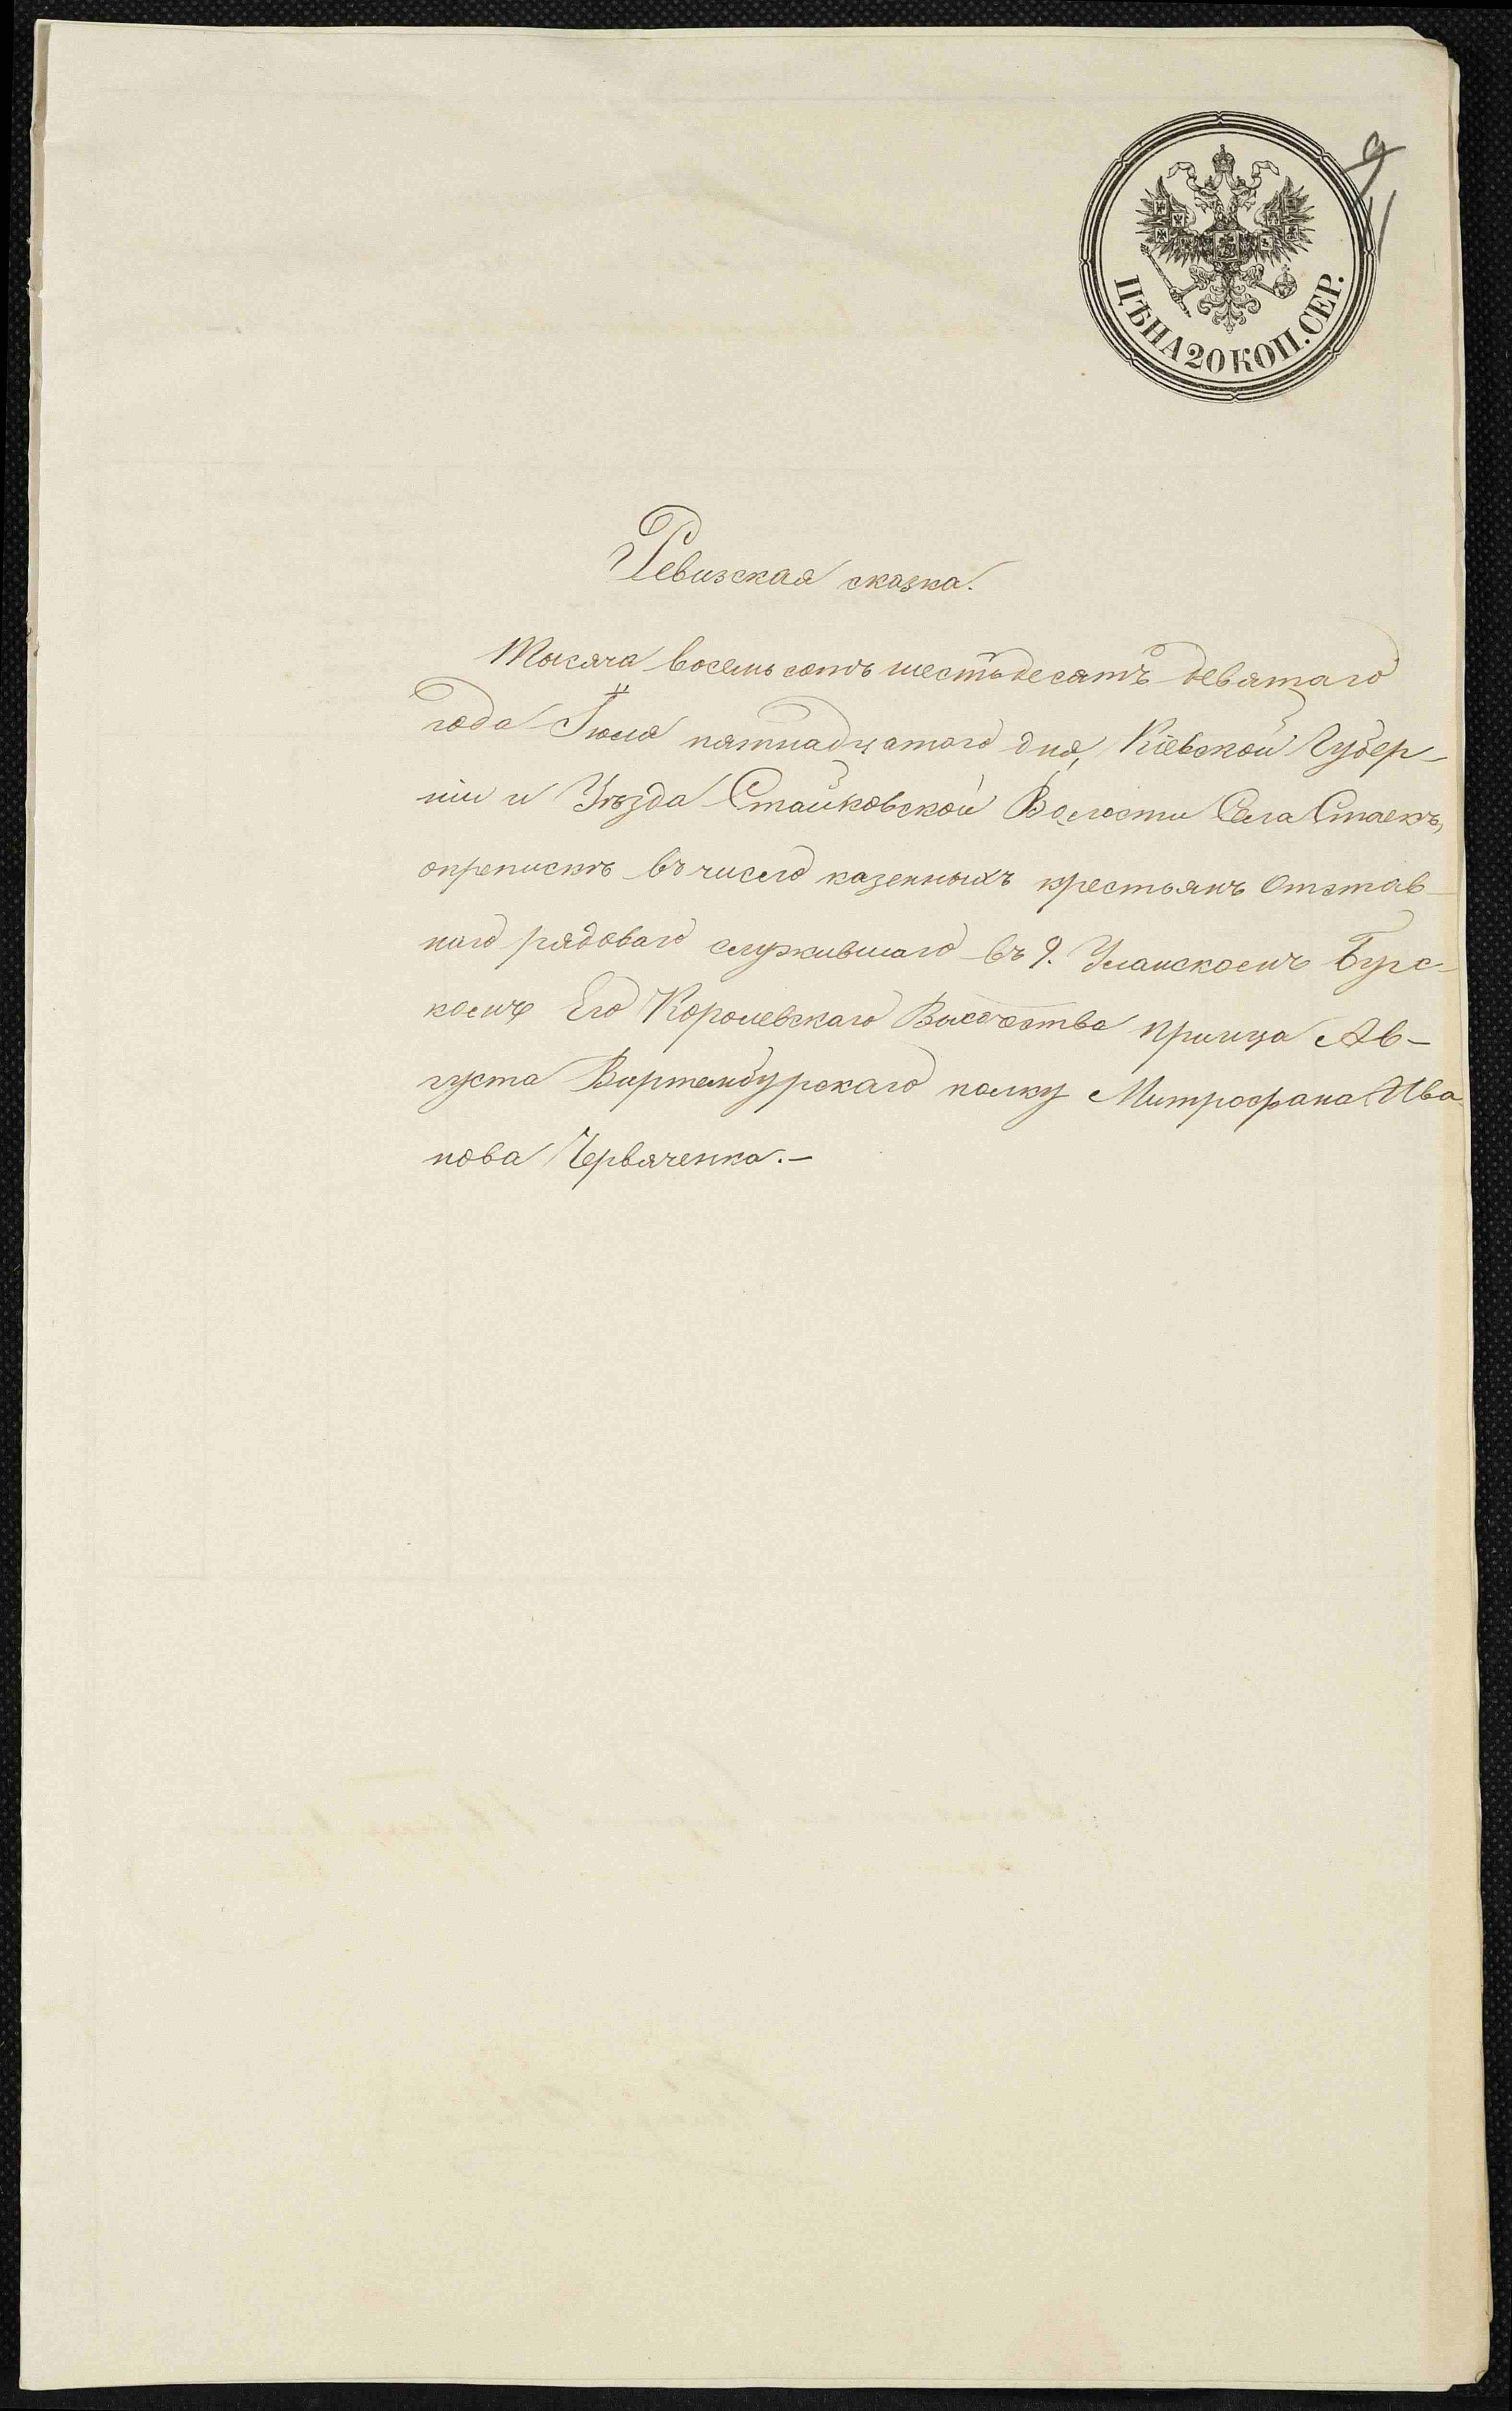 9
ЦѢНА 20 КОП. СЕР.
Ревизская сказка.
Тысяча восемьсотъ шестьдесятъ девятаго
года Іюля пятнадцатого дня, Кіевской Губер-
ніи и Уѣзда Стайковской Волости Села Стаекъ,
о въ число казенныхъ крестьянъ Отстав-
наго рядоваго служившаго въ 9. Уланскомъ Бугс-
комъ Его Королевскаго Высочества принца Ав-
густа Виртембурскаго полку Митрофана Ива-
нова Червяченка.-